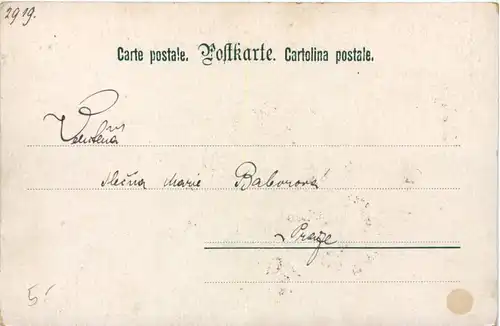 2919.
Carte postale. Postkarte. Cartolina postale.
Velectěná
slečna Marie Baborová
v Praze
5